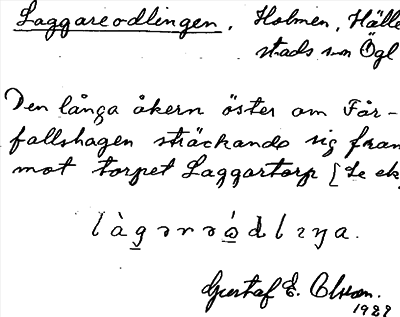 Laggareodlingen. Holmen, Hälle
stads sn Ögl
Den långa åkern öster om Får-
fallshagen sträckande sig fram
mot torpet Laggartorp [Se ek
làgərəɷ́dlɪŋa.
Gustaf E. Olson.
1928